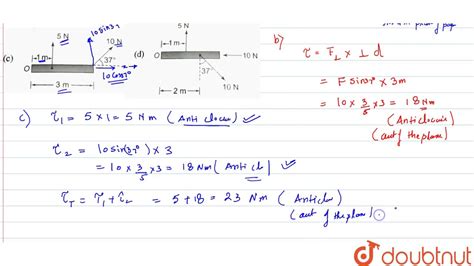 10 sin37
5 N
10 N
1 m
37°
(c)
O
10 cos37°
3 m
5 N
1 m
(d)
O
10 N
37°
2 m
10 N
b)
τ = F⊥ × ⊥ d
= F sin37° × 3m
= 10 × 3/5 × 3 = 18 Nm
(Anticlockwise)
(out of the plane)
c) τ1 = 5 × 1 = 5 Nm (Anticlockwise)
τ2 = 10 sin(37°) × 3
= 10 × 3/5 × 3 = 18 Nm (Anticlo)
τT = τ1 + τ2 = 5 + 18 = 23 Nm (Anticlo)
(out of the plane)
doubtnut